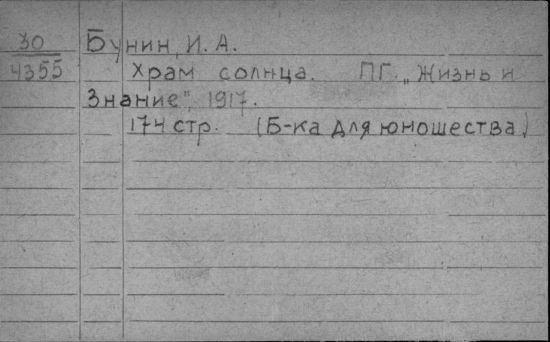 30 Бунин, И. А.
4355 Храм солнца. ПГ. „Жизнь и
Знание", 1917.
174 стр. (Б-ка для юношества)